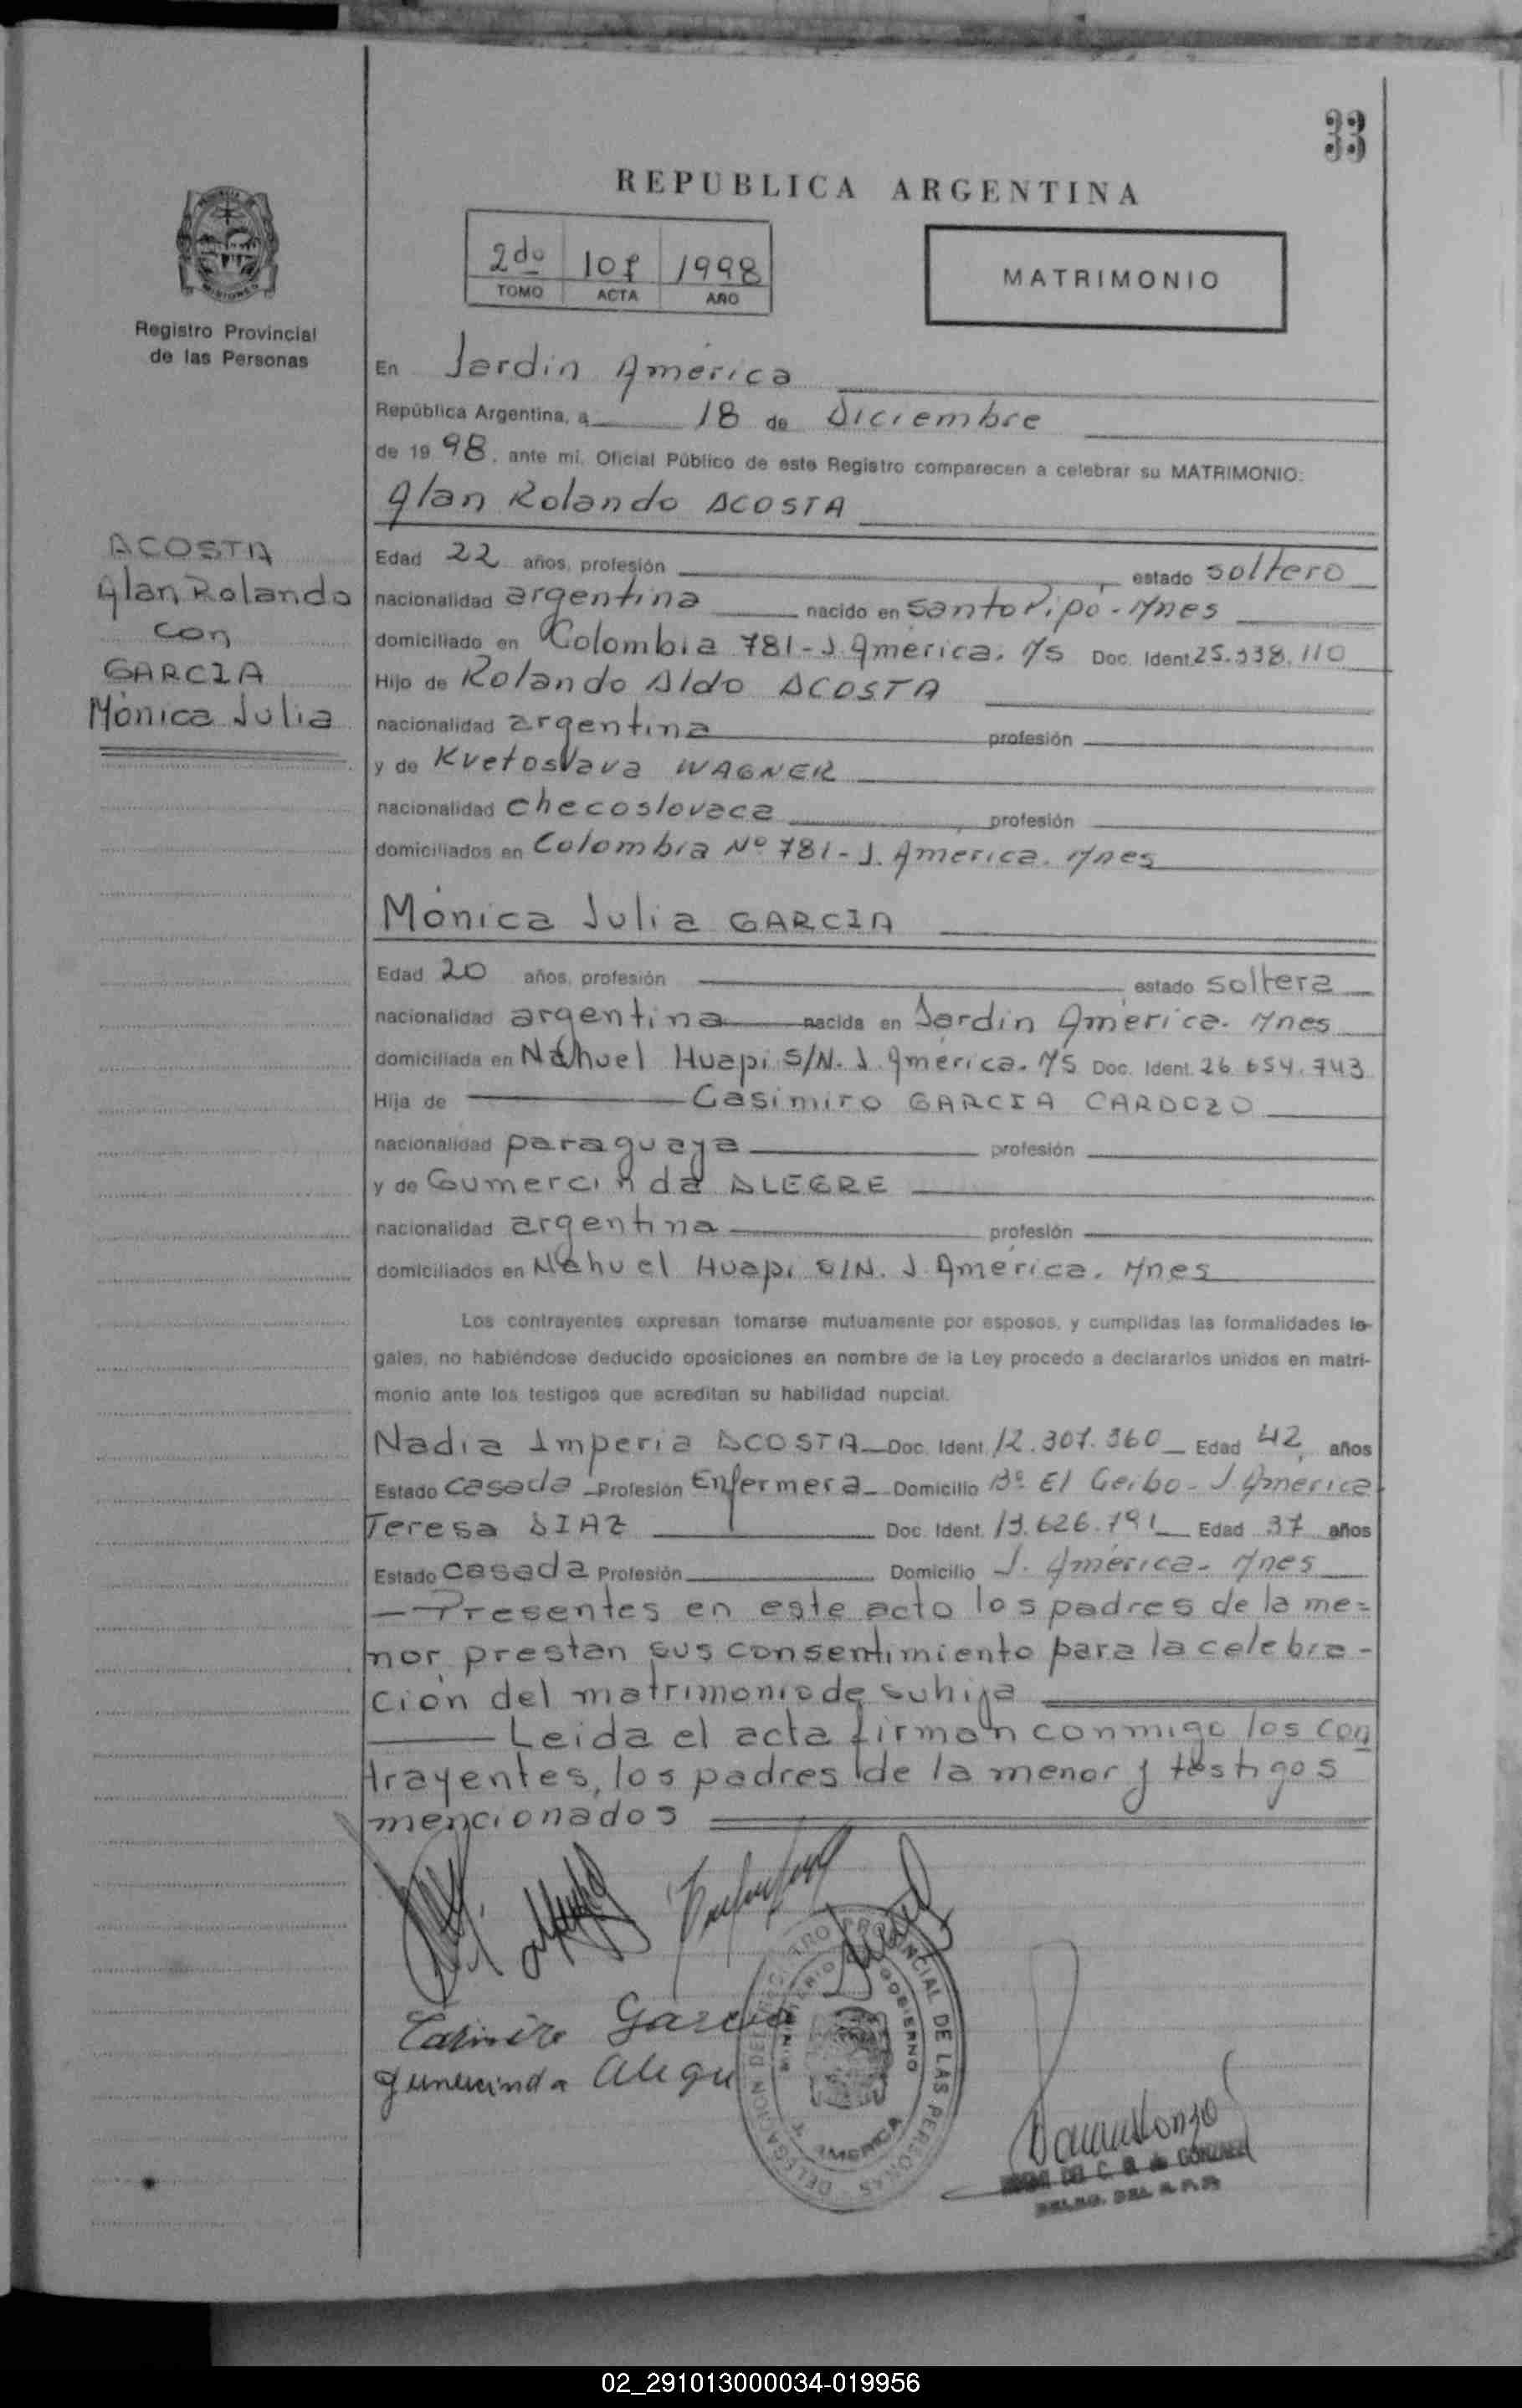 33
REPUBLICA ARGENTINA
2do 1998
TOMO ACTA AÑO
MATRIMONIO
Registro Provincial
de las Personas
En Jardin América
República Argentina, a 18 de Diciembre
de 1998, ante mí, Oficial Público de este Registro comparecen a celebrar su MATRIMONIO:
Alan Rolando ACOSTA
ACOSTA
Alan Rolando
con
GARCIA
Mónica Julia
Edad 22 años, profesión estado soltero
nacionalidad argentina nacido en Santo Pipó - Mnes
domiciliado en Colombia 781 - J. América. Ms Doc. Ident.
Hijo de Rolando Aldo ACOSTA
nacionalidad argentina profesión
y de Kvetoslava WAGNER
nacionalidad checoslovaca profesión
domiciliados en Colombia Nº 781 - J. América. Mnes
Mónica Julia GARCIA
Edad 20 años, profesión estado soltera
nacionalidad argentina nacida en Jardin América. Mnes
domiciliada en Nahuel Huapi S/N. J. América. Ms Doc. Ident. 26.654.743
Hija de Casimiro GARCIA CARDOZO
nacionalidad paraguaya profesión
y de Gumercinda ALEGRE
nacionalidad argentina profesión
domiciliados en Nahuel Huapi S/N. J. América. Mnes
Los contrayentes expresan tomarse mutuamente por esposos, y cumplidas las formalidades le-
gales, no habiéndose deducido oposiciones en nombre de la Ley procedo a declararlos unidos en matri-
monio ante los testigos que acreditan su habilidad nupcial.
Nadia Imperia ACOSTA Doc. Ident. 12.307.360 Edad 42 años
Estado casada Profesión Enfermera Domicilio Bº El Ceibo - J. América
Teresa DIAZ Doc. Ident. 13.626.791 Edad 37 años
Estado casada Profesión Domicilio J. América - Mnes
- Presentes en este acto los padres de la me=
nor prestan sus consentimiento para la celebra-
ción del matrimonio de su hija
Leida el acta firman conmigo los con
trayentes, los padres de la menor y testigos
mencionados
Casimiro Garcia
Gumercinda Alegre
DELEGACION DEL REGISTRO PROVINCIAL DE LAS PERSONAS
MINISTERIO DE GOBIERNO
J. AMERICA
DEL C. B. de GONZALEZ
DELEG. DEL R.P.P.
02_291013000034-019956